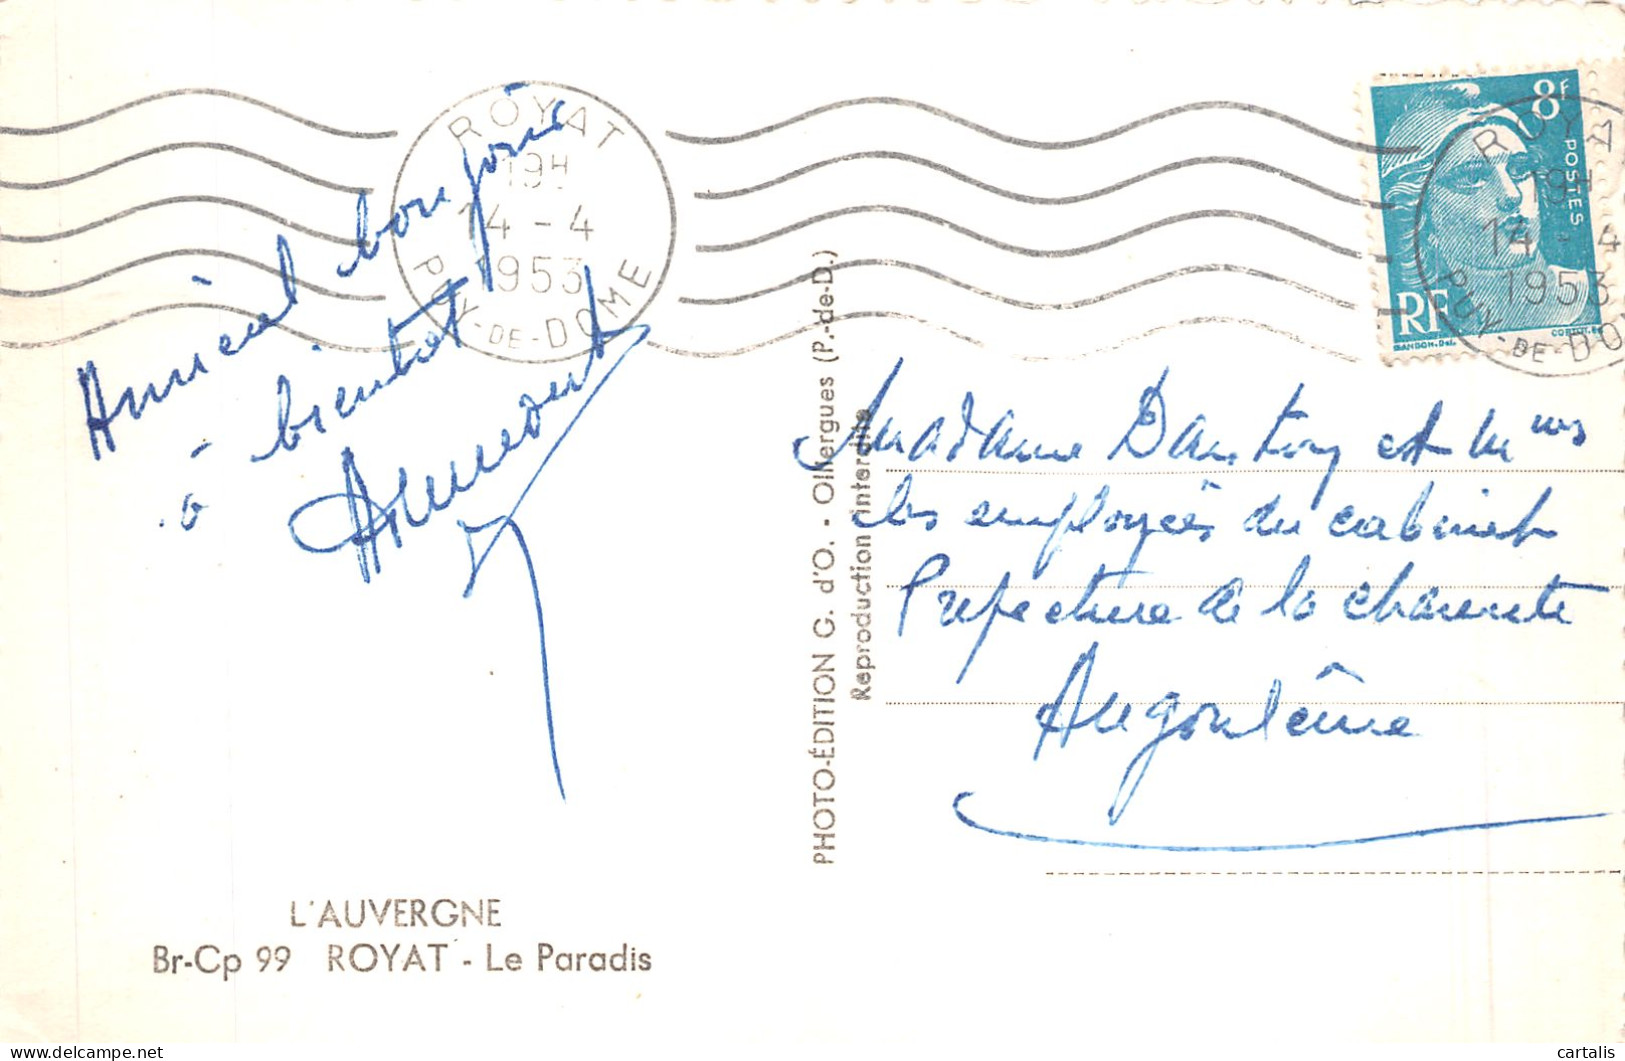 ROYAT
19H
14-4
1953
PUY-DE-DOME
Amical bonjour
à bientôt
8F
POSTES
RF
GANDON.Del.
CORTOT.Sc
ROYAT
19H
14-4
1953
PUY-DE-DO
Madame et Mmes
les employées du cabinet
Préfecture de la Charente
Angoulême
PHOTO-ÉDITION G. d'O. - Olliergues (P.-de-D.)
Reproduction interdite
L'AUVERGNE
Br-Cp 99 ROYAT - Le Paradis
cartalis